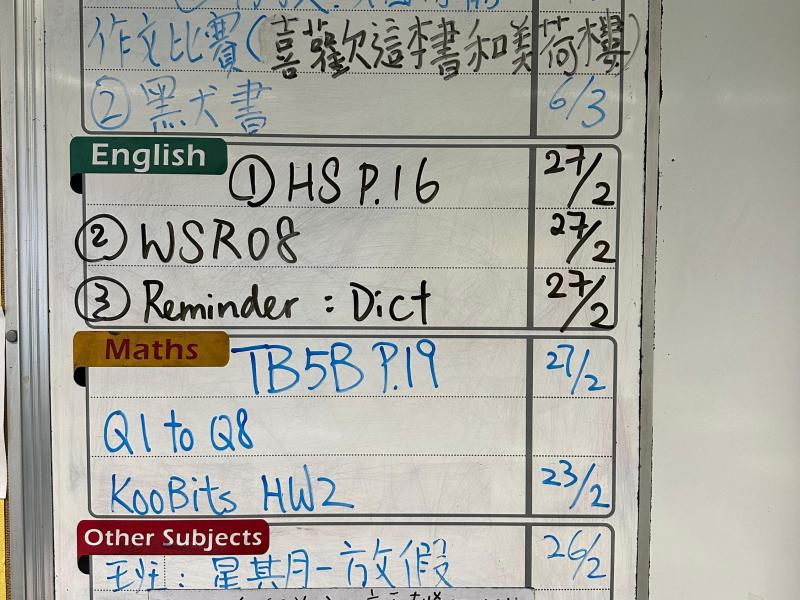 作文比賽(喜歡這本書和美荷樓)
②黑犬書 6/3
English
① HS P.16 27/2
② WSR08 27/2
③ Reminder : Dict 27/2
Maths
TB5B P.19 27/2
Q1 to Q8
KooBits HW2 23/2
Other Subjects
班: 星期一放假 26/2